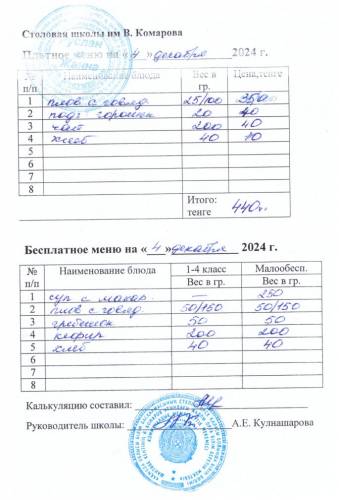 Столовая школы им В. Комарова
Платное меню на « 4 » декабря 2024 г.
№ п/п Наименование блюда Вес в гр. Цена,тенге
1 плов с говяд. 25/100 350
2 подг горошек 20 40
3 чай 200 40
4 хлеб 40 10
5
6
7
8
Итого: тенге 440т.
Бесплатное меню на « 4 » декабря 2024 г.
№ п/п Наименование блюда 1-4 класс Малообесп.
Вес в гр. Вес в гр.
1 суп с макар. — 250
2 плов с говяд. 50/150 50/150
3 гребешок 50 50
4 кефир 200 200
5 хлеб 40 40
6
7
8
Калькуляцию составил:
Руководитель школы: А.Е. Кулнашарова